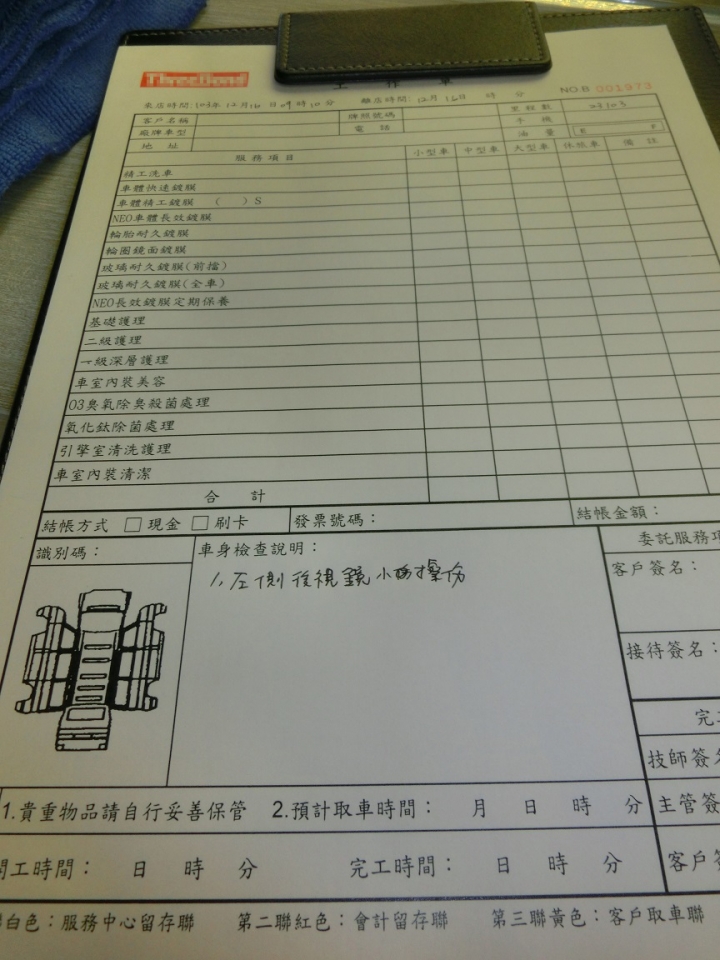 ThreeBond
工作單
NO.B 001973
來店時間:103年12月16日09時10分 離店時間:12月16日 時 分
客戶名稱 牌照號碼 里程數
廠牌車型 電話 手機
地址 油量 E F
服務項目 小型車 中型車 大型車 休旅車 備註
精工洗車
車體快速鍍膜
車體精工鍍膜 ( )S
NEO車體長效鍍膜
輪胎耐久鍍膜
輪圈鏡面鍍膜
玻璃耐久鍍膜(前擋)
玻璃耐久鍍膜(全車)
NEO長效鍍膜定期保養
基礎護理
二級護理
一級深層護理
車室內裝美容
O3臭氧除臭殺菌處理
氧化鈦除菌處理
引擎室清洗護理
車室內裝清潔
合計
結帳方式 □現金 □刷卡 發票號碼: 結帳金額:
識別碼: 車身檢查說明: 委託服務項
1.左側後視鏡小擦傷
客戶簽名:
接待簽名:
完工
技師簽名
1.貴重物品請自行妥善保管 2.預計取車時間: 月 日 時 分 主管簽
開工時間: 日 時 分 完工時間: 日 時 分 客戶簽
聯白色:服務中心留存聯 第二聯紅色:會計留存聯 第三聯黃色:客戶取車聯